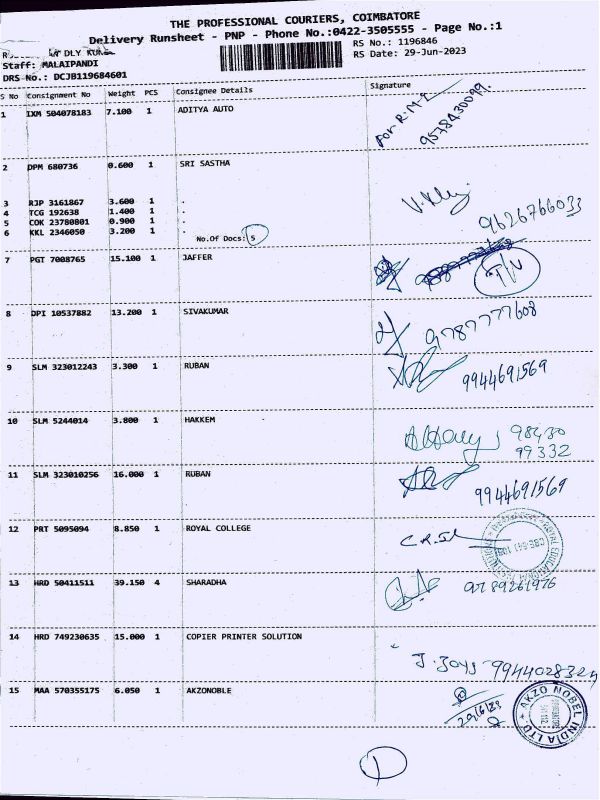 THE PROFESSIONAL COURIERS, COIMBATORE
Delivery Runsheet - PNP - Phone No.:0422-3505555 - Page No.:1
RS No.: 1196846
DLY
Staff: MALAIPANDI
RS Date: 29-Jun-2023
DRS No.: DCJB119684601
S No Consignment No Weight PCS Consignee Details Signature
1 IXM 504078183 7.100 1 ADITYA AUTO
For R.M.
9578430099.
2 DPM 680736 0.600 1 SRI SASTHA
3 RJP 3161867 3.600 1 .
4 TCG 192638 1.400 1 .
5 COK 23780801 0.900 1 .
6 KKL 2346050 3.200 1 .
9626766033
No.Of Docs: 5
7 PGT 7008765 15.100 1 JAFFER
8 DPI 10537882 13.200 1 SIVAKUMAR
9787777608
9 SLM 323012243 3.300 1 RUBAN
9944691569
10 SLM 5244014 3.800 1 HAKKEM
98430
99332
11 SLM 323010256 16.000 1 RUBAN
9944691569
12 PRT 5095094 8.850 1 ROYAL COLLEGE
13 HRD 50411511 39.150 4 SHARADHA
9789261976
14 HRD 749230635 15.000 1 COPIER PRINTER SOLUTION
J. Joys 9944028324
15 MAA 570355175 6.050 1 AKZONOBLE
29/6/23
AKZO NOBEL INDIA LTD
1